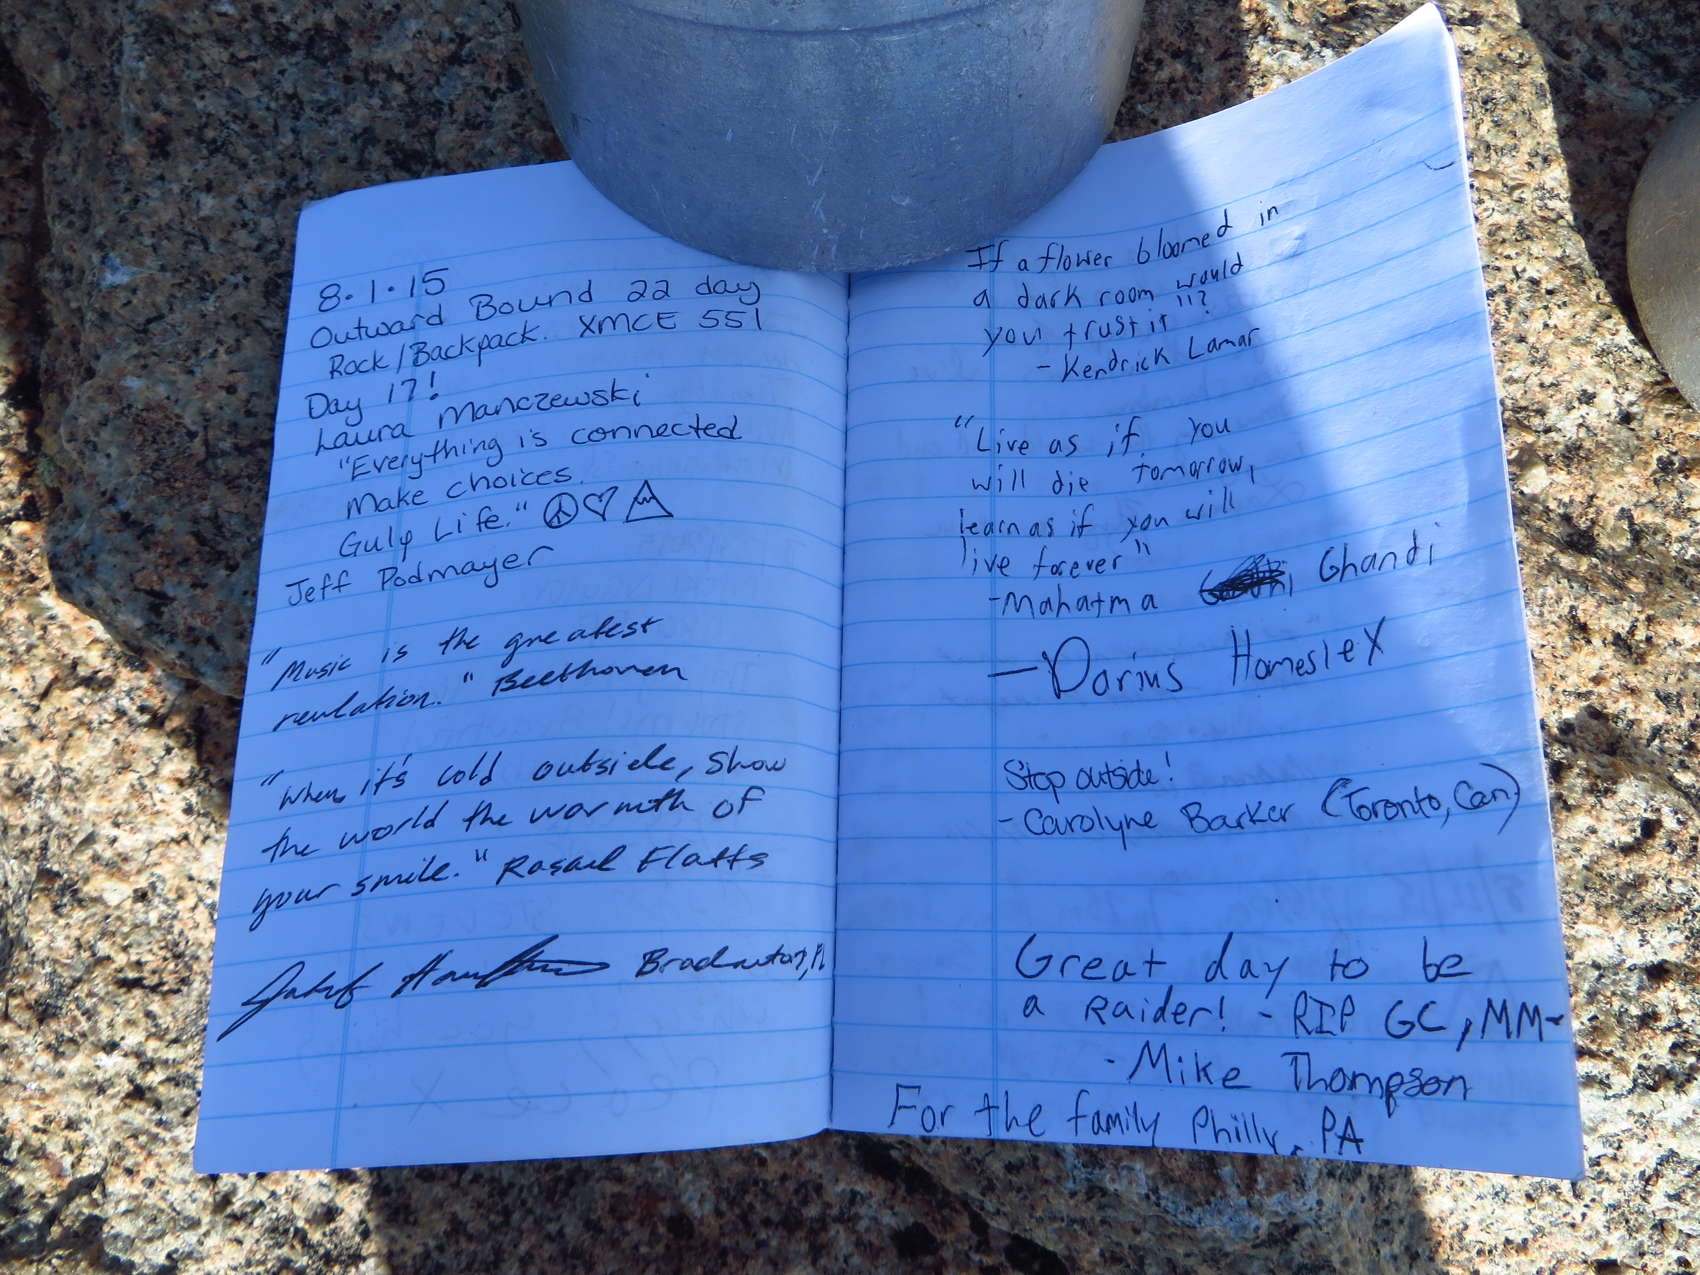 8.1.15
Outward Bound 22 day
Rock/Backpack. XMCE 551
Day 17!
Laura Manczewski
"Everything is connected
Make choices.
Gulp Life."
Jeff Podmayer
"Music is the greatest
revlation." Beethoven
"When it's cold outside, show
the world the warmth of
your smile." Rascal Flatts
If a flower bloomed in
a dark room would
you trust it"?
- Kendrick Lamar
"Live as if you
will die tomorrow,
learn as if you will
live forever"
-Mahatma Ghandi
-Darius Homeslex
Stop outside!
- Carolyne Barker (Toronto, Can)
Great day to be
a Raider! - RIP GC, MM-
- Mike Thompson
For the family Philly, PA